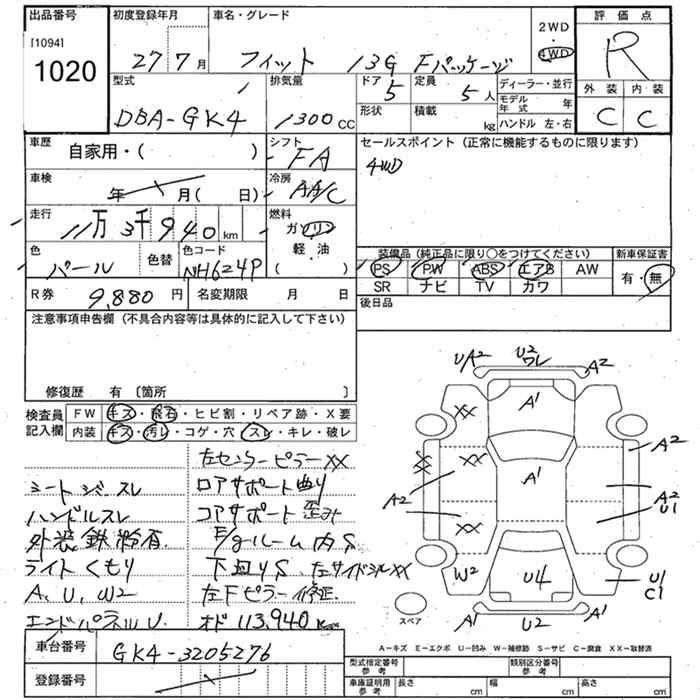 出品番号
[1094]
1020
初度登録年月
27 7月
車名・グレード
フィット 13G Fパッケージ
2WD
・
4WD
評価点
R
外装 内装
C C
型式
DBA-GK4
排気量
1300cc
ドア
5
定員
5人
形状
積載
kg
ディーラー・並行
モデル年式 年
ハンドル 左・右
車歴
自家用・( )
シフト
FA
セールスポイント (正常に機能するものに限ります)
4WD
車検
年 月( 日)
冷房
AA/C
走行
11万3千940km
燃料
ガソリン
軽・油
( )
色
パール
色替
色コード
NH624P
装備品 (純正品に限り○をつけてください)
新車保証書
PS PW ABS エアB AW
SR ナビ TV カワ
有・無
R券 9,880円
名変期限 月 日
後日品
注意事項申告欄 (不具合内容等は具体的に記入して下さい)
修復歴 有 〔箇所 〕
検査員記入欄
FW キズ・飛石・ヒビ割・リペア跡・X要
内装 キズ・汚レ・コゲ・穴・スレ・キレ・破レ
左センターピラーXX
シートシミスレ ロアサポート曲り
ハンドルスレ コアサポート歪み
外装鉄粉有 E/gルーム内S
ライトくもり 下廻りS 左サイドシルXX
A、U、W2 左Fピラー修正
エンドパネルU. オド113,940km
U/A2 U2 ワレ A2
A1
XX
XX XX A1 A2
A2 A2 U1
XX
W2 U4 U/C1
スペア
A1 U2 A1
車台番号
GK4-3205276
登録番号
A-キズ E-エクボ U-凹み W-補修跡 S-サビ C-腐食 XX-取替済
型式指定番号 参考
類別区分番号 参考
車庫証明用 参考
長さ cm
幅 cm
高さ cm